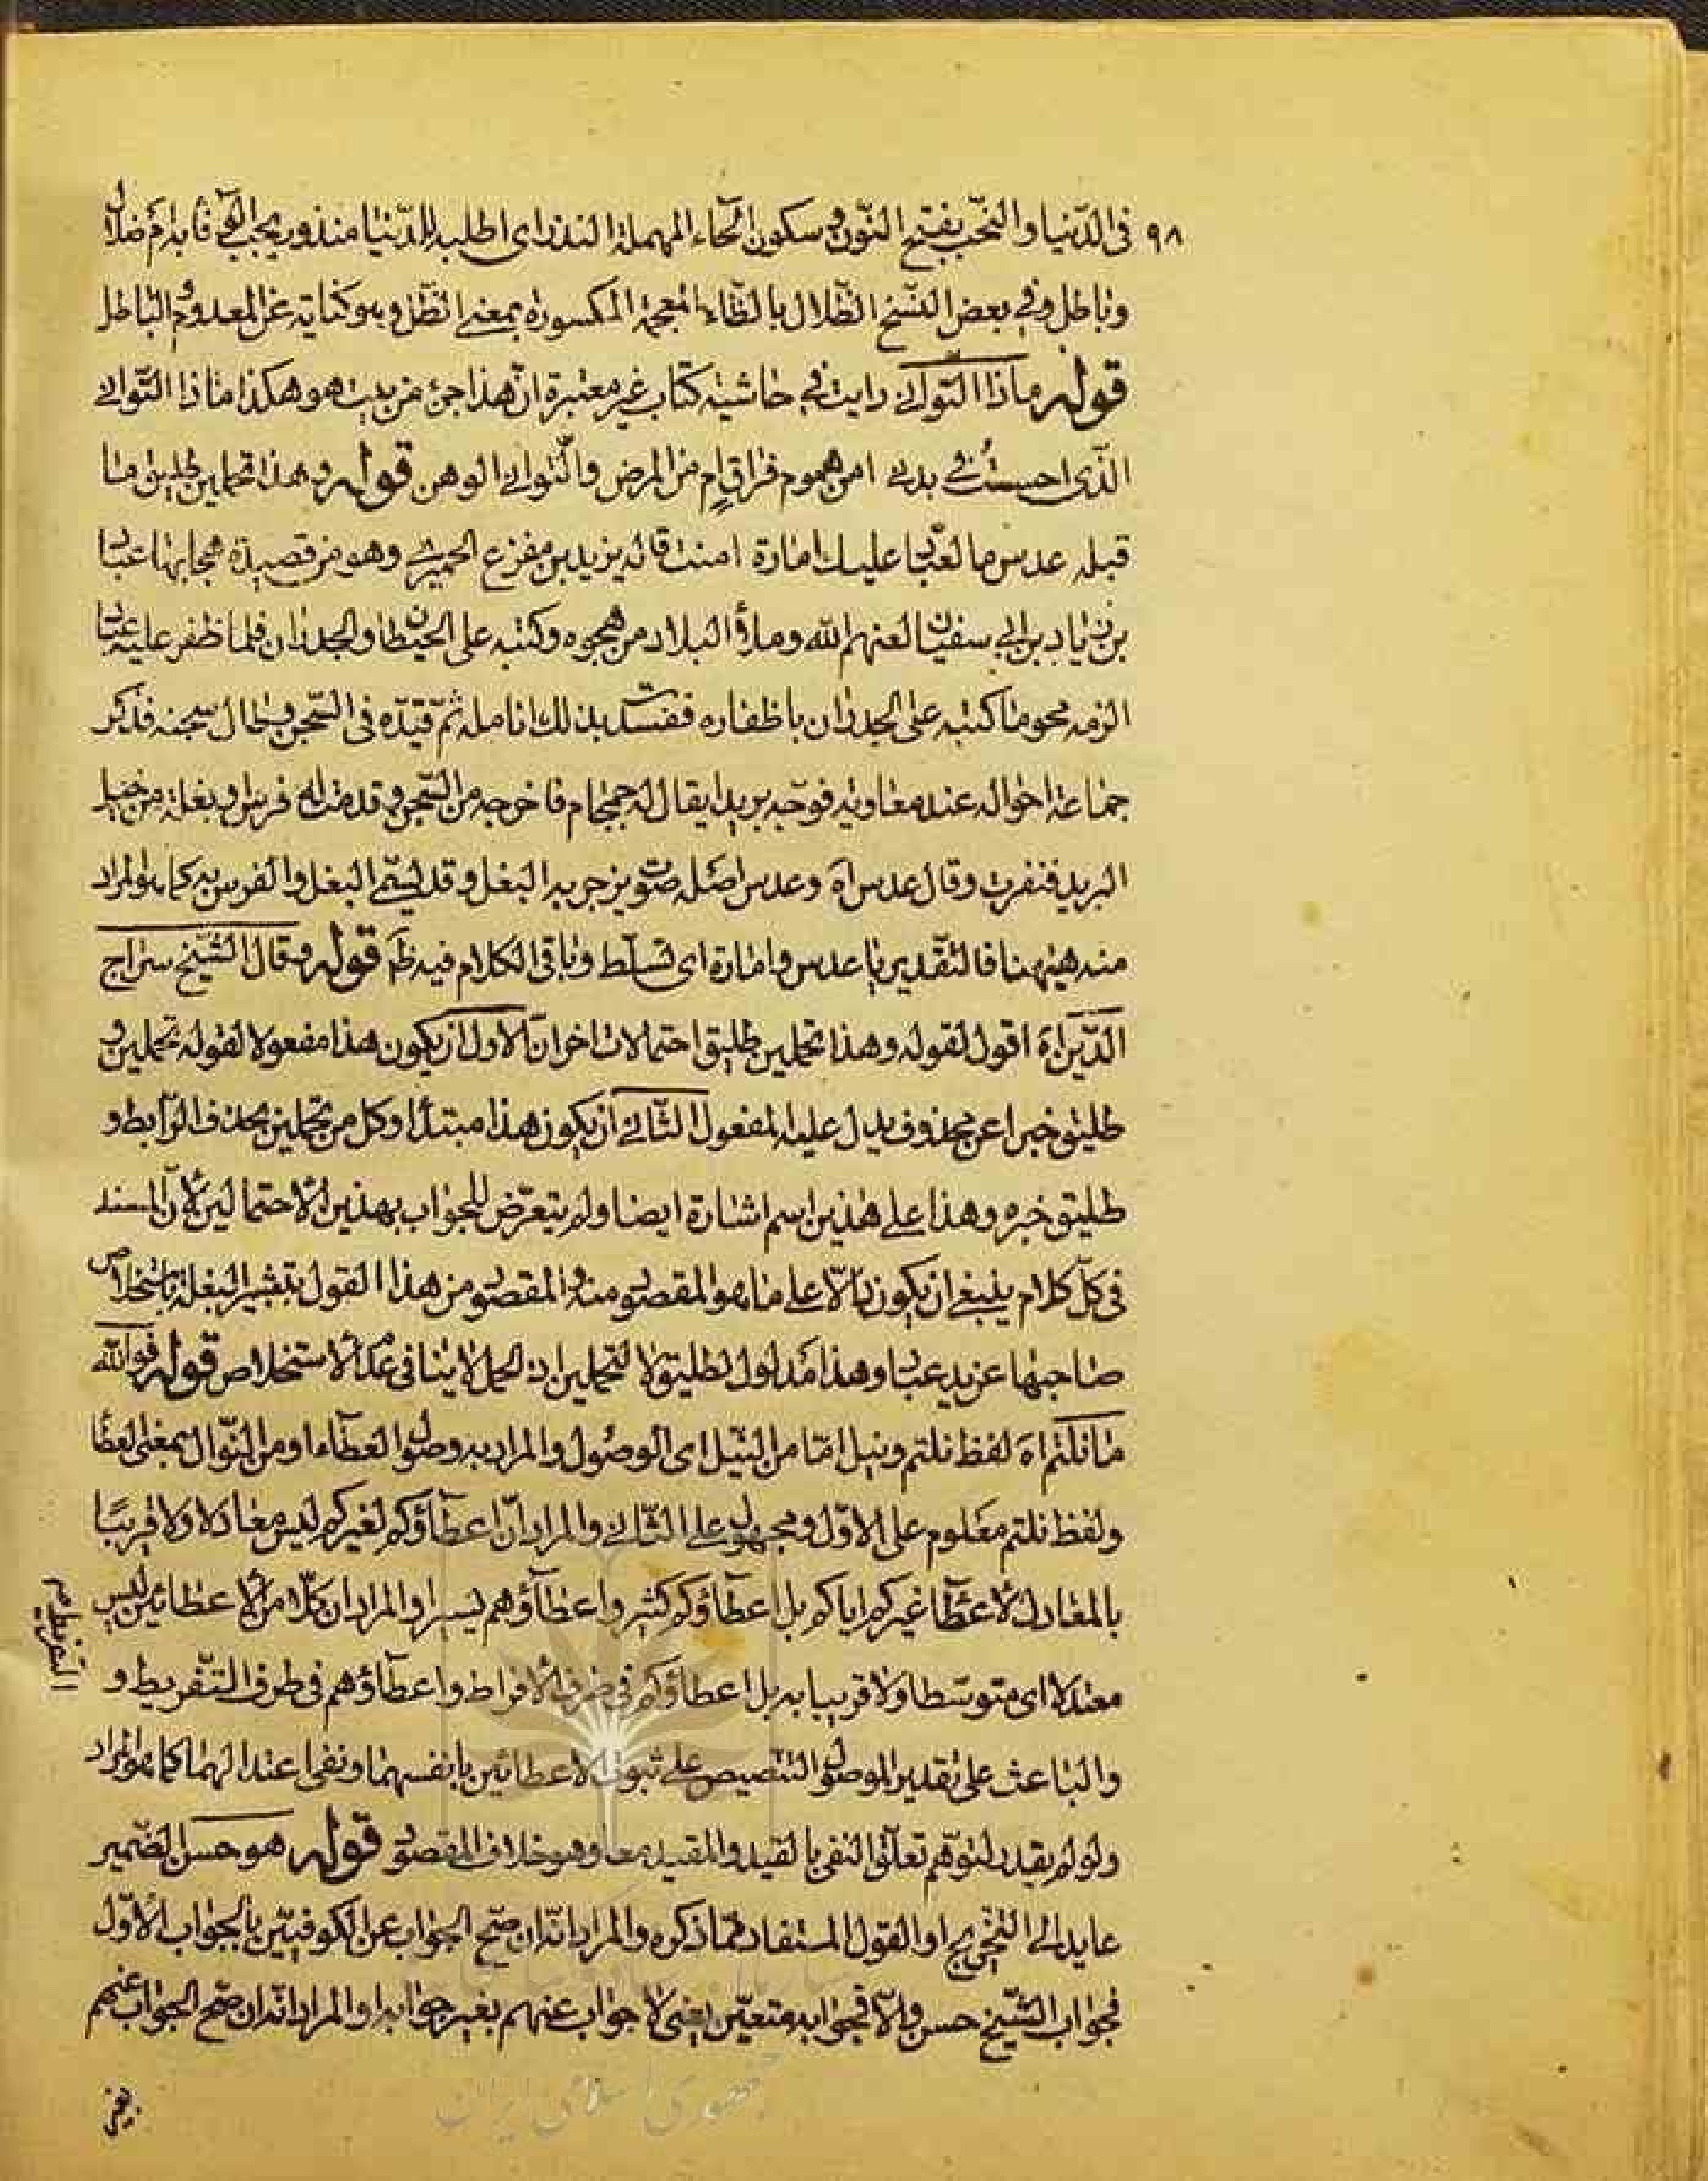 ٩٨ فى الدّنيا والنّحب بفتح النّون و سكون الحاء المهملة النذر اى اطلبه للدّنيا منذور يجب
وباطل وفي بعض النّسخ الظّلال بالظّاء المعجمة المكسورة بمعنى الظّل وهو كناية عن المعدوم والباطل
قوله ماذا التّوانى رايت فى حاشية كتاب غير معتبرة انّ هذا جزء من بيت هو هكذا ماذا التّوانى
الّذى احسست فى بدنى امن هموم فراق ام من المرض والتّوانى الوهن قوله وهذا تحملين طليق ما
قبله عدس ما لعبّاد عليك امارة امنت قاله يزيد بن مفزع الحميرى وهو من قصيدة هجا بها عبّاد
بن زياد بن ابى سفيان لعنهم الله وملأ البلاد من هجوه وكتبه على الحيطان والجدران فلمّا ظفر عليه عبّاد
الزمه محو ما كتبه على الجدران باظفاره ففسدت بذلك انامله ثمّ قيّده فى السّجن وطال سجنه فذكر
جماعة احواله عند معاوية فوجّه بريدا يقال له جمجام فاخرجه من السّجن وقدمت له فرس او بغلة من خيل
البريد فنفرت وقال عدس اه وعدس اصله صوت يزجر به البغل وقد يسمّى البغل والفرس به كما هو المراد
منه هيهنا فالتّقدير يا عدس وامارة اى تسلّط وباقى الكلام فيه ظ قوله وقال الشّيخ سراج
الدّين اه اقول لقوله وهذا تحملين طليق احتمالات اخران الاول ان يكون هذا مفعولا لقوله تحملين و
طليق خبرا عن محذوف يدل عليه المفعول الثّانى ان يكون هذا مبتدأ وكل من تحملين بحذف الرّابط و
طليق خبره وهذا على هذين اسم اشارة ايضا ولم يتعرّض للجواب بهذين الاحتمالين لانّ المسند
فى كلّ كلام ينبغى ان يكون دالّا على ما هو المقصود منه والمقصود من هذا القول تبشير البغلة باستخلاص
صاحبها عن يد عبّاد وهذا مدلول لطليق لا لتحملين اذ الحمل لا ينافى عدم الاستخلاص قوله فوالله
ما نلتم اه لفظ نلتم ونيل امّا من النّيل اى الوصول والمراد به وصول العطاء او من النّوال بمعنى العطا
ولفظ نلتم معلوم على الاوّل ومجهول على الثّانى والمراد انّ اعطآؤكم لغيركم ليس معادلا ولا قريبًا
بالمعادل لاعطآ غيركم اياكم بل اعطآؤكم كثير واعطآؤهم يسير او المراد ان كلّا من الاعطائين ليس
معتدلا اى متوسّطا ولا قريبا به بل اعطاؤكم فى طرف الافراط واعطآؤهم فى طرف التّفريط و
التفريط م
والباعث على تقدير الموصول التنصيص على ثبوت الاعطائين بانفسهما ونفى اعتدالهما كما هو المراد
ولو لم يقدر لتوهّم تعلّق النفى بالقيد والمقيد معا وهو خلاف المقصود قوله هو حسن الضّمير
عايد الى التّخريج او القول المستفاد ممّا ذكره والمراد انّه ان صحّ الجواب عن الكوفيّين بالجواب الاوّل
فجواب الشّيخ حسن والّا فجوابه متعيّن يعنى لا جواب عنهم بغير جوابه او المراد انّه ان صحّ الجواب عنهم
جمهوری اسلامی ایران